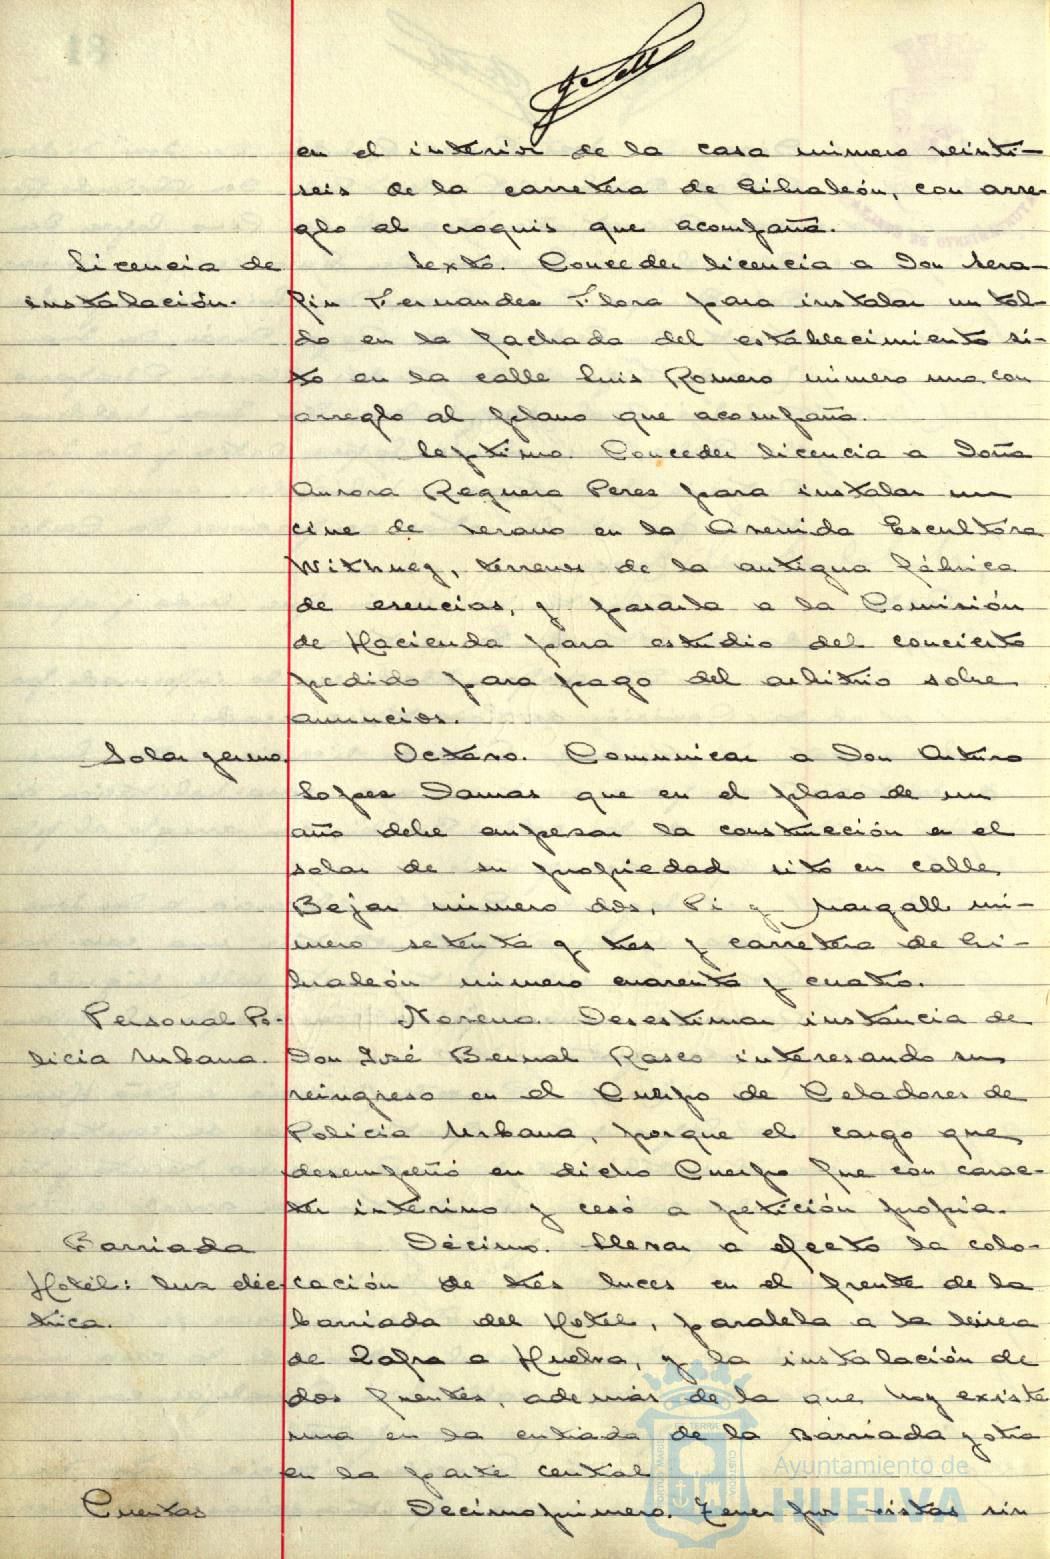 en el interior de la casa número veinti-
seis de la carretera de Gibraleón, con arre-
glo al croquis que acompaña.
Licencia de
instalación.
Sexto. Conceder licencia a Don Sera-
fin Fernandez Flora para instalar un tol-
do en la fachada del establecimiento si-
to en la calle Luis Romero número uno, con
arreglo al plano que acompaña.
Septimo. Conceder licencia a Doña
Aurora Reguera Perez para instalar un
cine de verano en la Avenida Escultora
Withney, terrenos de la antigua fábrica
de esencias, y pasarla a la Comisión
de Hacienda para estudio del concierto
pedido para pago del arbitrio sobre
anuncios.
Solar yermo.
Octavo. Comunicar a Don Arturo
Lopez Damas que en el plazo de un
año debe empezar la construcción en el
solar de su propiedad sito en calle
Bejar número dos, Pi y Margall nú-
mero setenta y tres y carretera de Gi-
braleón número cuarenta y cuatro.
Personal Po-
licia Urbana.
Noveno. Desestimar instancia de
Don José Bernal Rasco interesando su
reingreso en el Cuerpo de Celadores de
Policia Urbana, porque el cargo que
desempeñó en dicho Cuerpo fue con carac-
ter interino y cesó a petición propia.
Barriada
Hotel: luz eléc
trica.
Décimo. Llevar a efecto la colo-
cación de tres luces en el frente de la
barriada del Hotel, paralela a la linea
de Zafra a Huelva, y la instalación de
dos fuentes, además de la que hoy existe
una en la entrada de la Barriada y otra
en la parte central
Cuentas
Decimoprimero. Tener por vistas sin
Ayuntamiento de
HUELVA